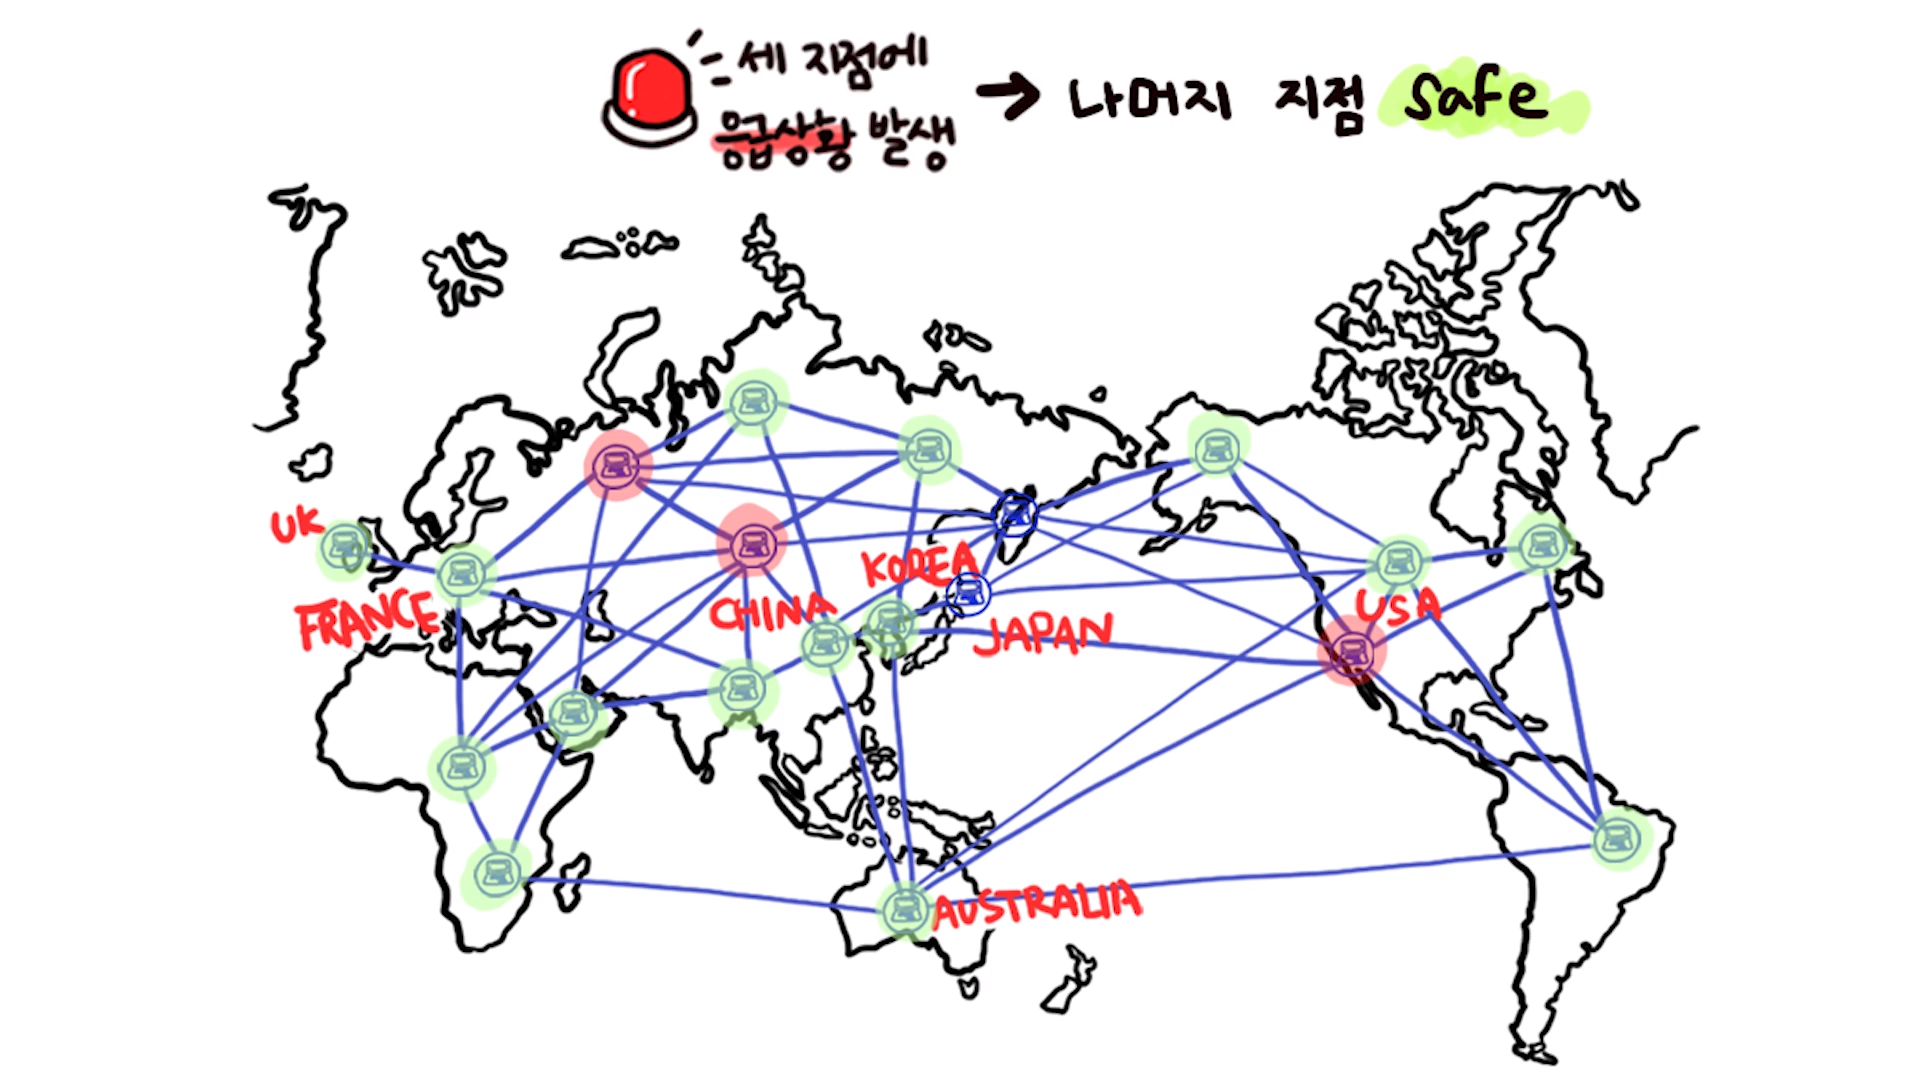 세 지점에
응급상황 발생
→ 나머지 지점 safe
UK
FRANCE
CHINA
KOREA
JAPAN
USA
AUSTRALIA